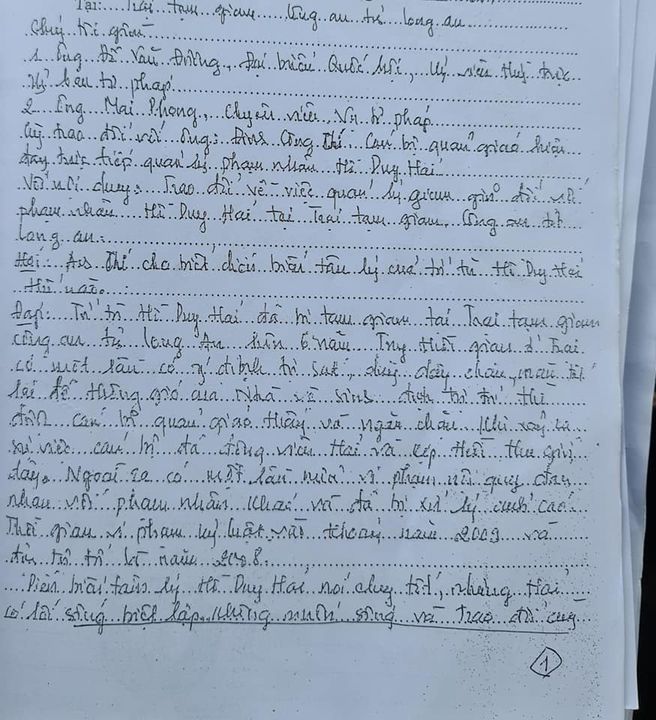 Tại: Trại tạm giam Công an tỉnh Long an
Chúng tôi gồm
1. Ông Đỗ Văn Đương, Đại biểu Quốc hội, Uỷ viên thường trực
Uỷ ban tư pháp
2. Ông Mai Phong, Chuyên viên, Vụ tư pháp
trao đổi với ông: Đinh Công Thí Cán bộ quản giáo hiện
đang trực tiếp quản lý phạm nhân Hồ Duy Hải
Với nội dung: Trao đổi về việc quản lý giam giữ đối với
phạm nhân Hồ Duy Hải tại Trại tạm giam Công an tỉnh
Long an.
Hỏi: Anh Thí cho biết diễn biến tâm lý của tử tù Hồ Duy Hải
thế nào.
Đáp: Tử tù Hồ Duy Hải đã bị tạm giam tại Trại tạm giam
Công an tỉnh Long An hơn 6 năm. Trong thời gian ở Trại
có một lần có ý định tự sát, dùng dây chăn, màn
lại để thông gió của Nhà vệ sinh định tự tử thì
được cán bộ quản giáo thấy và ngăn chặn. Khi xảy ra
sự việc cán bộ đã động viên Hải và kịp thời thu giữ
dây. Ngoài ra có một lần nữa vi phạm nội quy đánh
nhau với phạm nhân khác và đã bị xử lý cảnh cáo.
Thời gian vi phạm kỷ luật vào khoảng năm 2009 và
định tự tử là năm 2008.
Diễn biến tâm lý Hồ Duy Hải nói chung tốt, nhưng Hải
có lối sống biệt lập, không muốn sống và trao đổi cùng
1